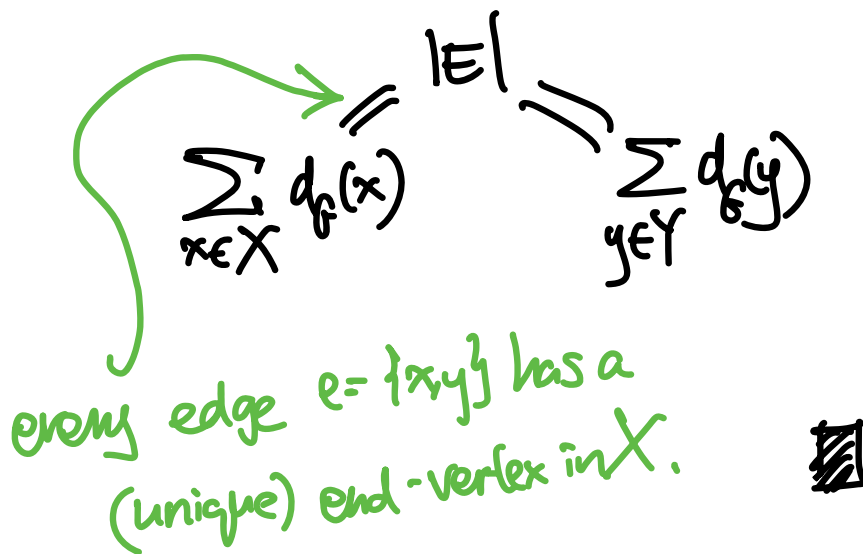 |E|
= =
∑ d_G(x) ∑ d_G(y)
x∈X y∈Y
every edge e = {x,y} has a
(unique) end-vertex in X.